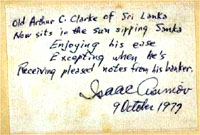 Old Arthur C. Clarke of Sri Lanka
Now sits in the sun sipping Sanka
Enjoying his ease
Excepting when he's
Receiving pleased notes from his banker.
Isaac Asimov
9 October 1977